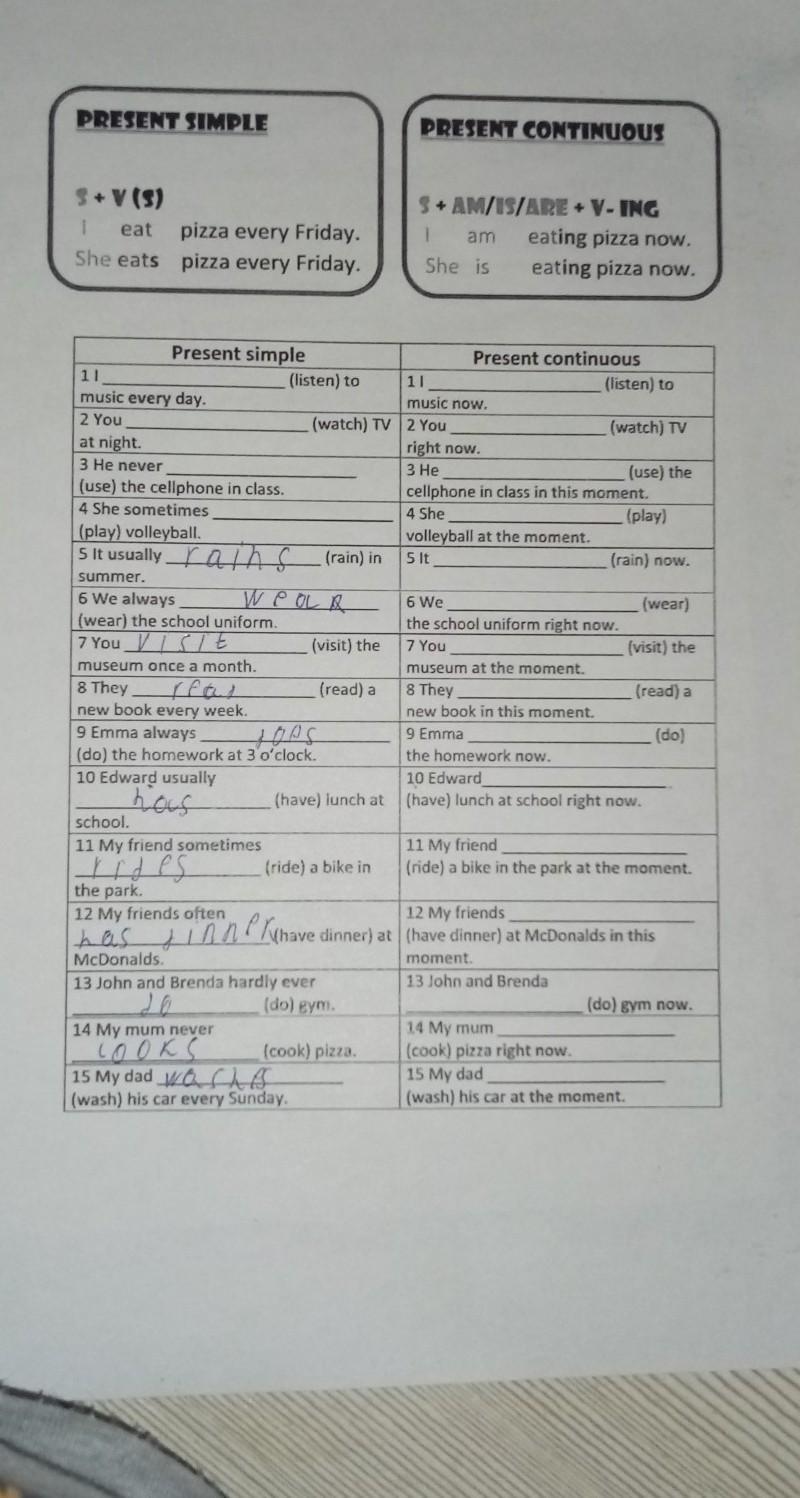 PRESENT SIMPLE
S + V (S)
I eat pizza every Friday.
She eats pizza every Friday.
PRESENT CONTINUOUS
S + AM/IS/ARE + V- ING
I am eating pizza now.
She is eating pizza now.
Present simple
1 I ____________ (listen) to
music every day.
2 You ____________ (watch) TV
at night.
3 He never ____________
(use) the cellphone in class.
4 She sometimes ____________
(play) volleyball.
5 It usually rains (rain) in
summer.
6 We always wear
(wear) the school uniform.
7 You visit (visit) the
museum once a month.
8 They read (read) a
new book every week.
9 Emma always does
(do) the homework at 3 o'clock.
10 Edward usually
has (have) lunch at
school.
11 My friend sometimes
rides (ride) a bike in
the park.
12 My friends often
has dinner (have dinner) at
McDonalds.
13 John and Brenda hardly ever
do (do) gym.
14 My mum never
cooks (cook) pizza.
15 My dad
(wash) his car every Sunday.
Present continuous
1 I ____________ (listen) to
music now.
2 You ____________ (watch) TV
right now.
3 He ____________ (use) the
cellphone in class in this moment.
4 She ____________ (play)
volleyball at the moment.
5 It ____________ (rain) now.
6 We ____________ (wear)
the school uniform right now.
7 You ____________ (visit) the
museum at the moment.
8 They ____________ (read) a
new book in this moment.
9 Emma ____________ (do)
the homework now.
10 Edward____________
(have) lunch at school right now.
11 My friend ____________
(ride) a bike in the park at the moment.
12 My friends ____________
(have dinner) at McDonalds in this
moment.
13 John and Brenda
____________ (do) gym now.
14 My mum ____________
(cook) pizza right now.
15 My dad ____________
(wash) his car at the moment.